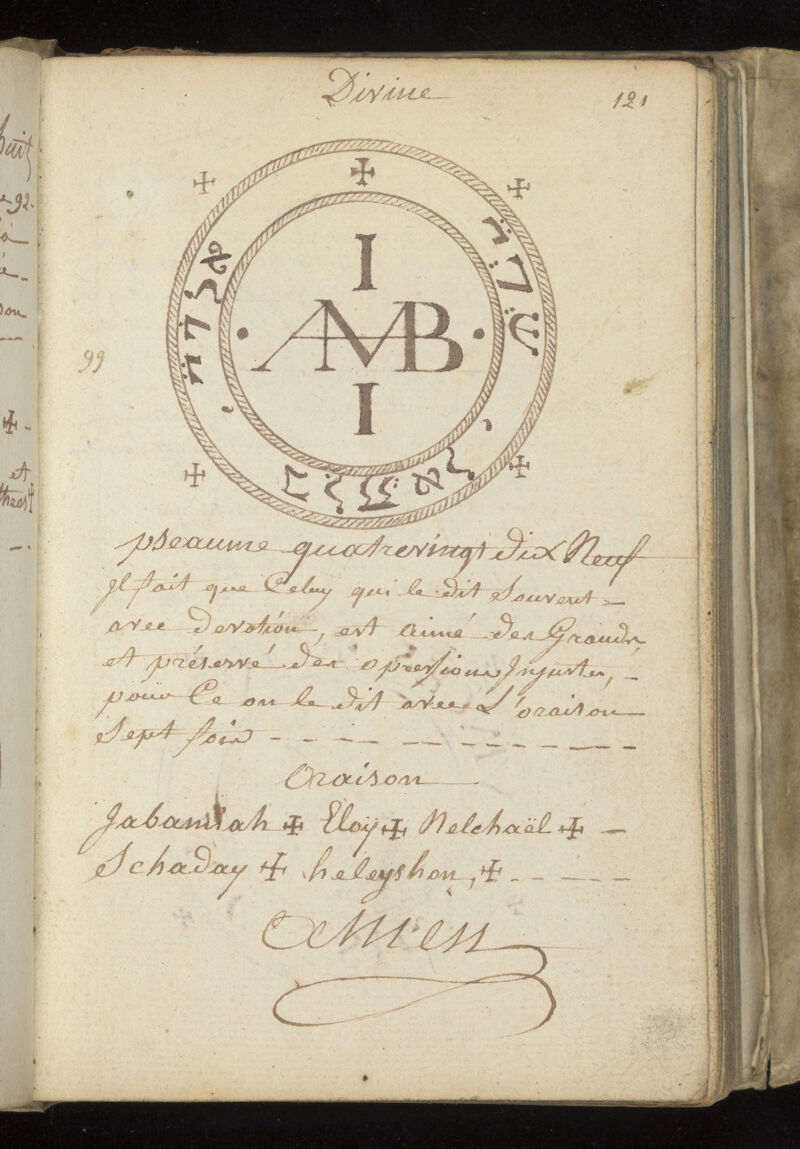 Divine
121
I
AMB
I
99
pseaume quatrevingt dix Neuf
Il fait que Celuy qui le dit Souvent =
avec devotión, est aimé des Grands
et préservé des opressions Injustes, -
pour Ce on le dit avec L'oraison
Sept fois - - - - - - - - - -
Oraison
Jabamiah ✠ Eloÿ ✠ Nelchaël ✠ -
Schaday ✠ heleyshon, ✠ - - - - -
Amen
huit
92.
son
et